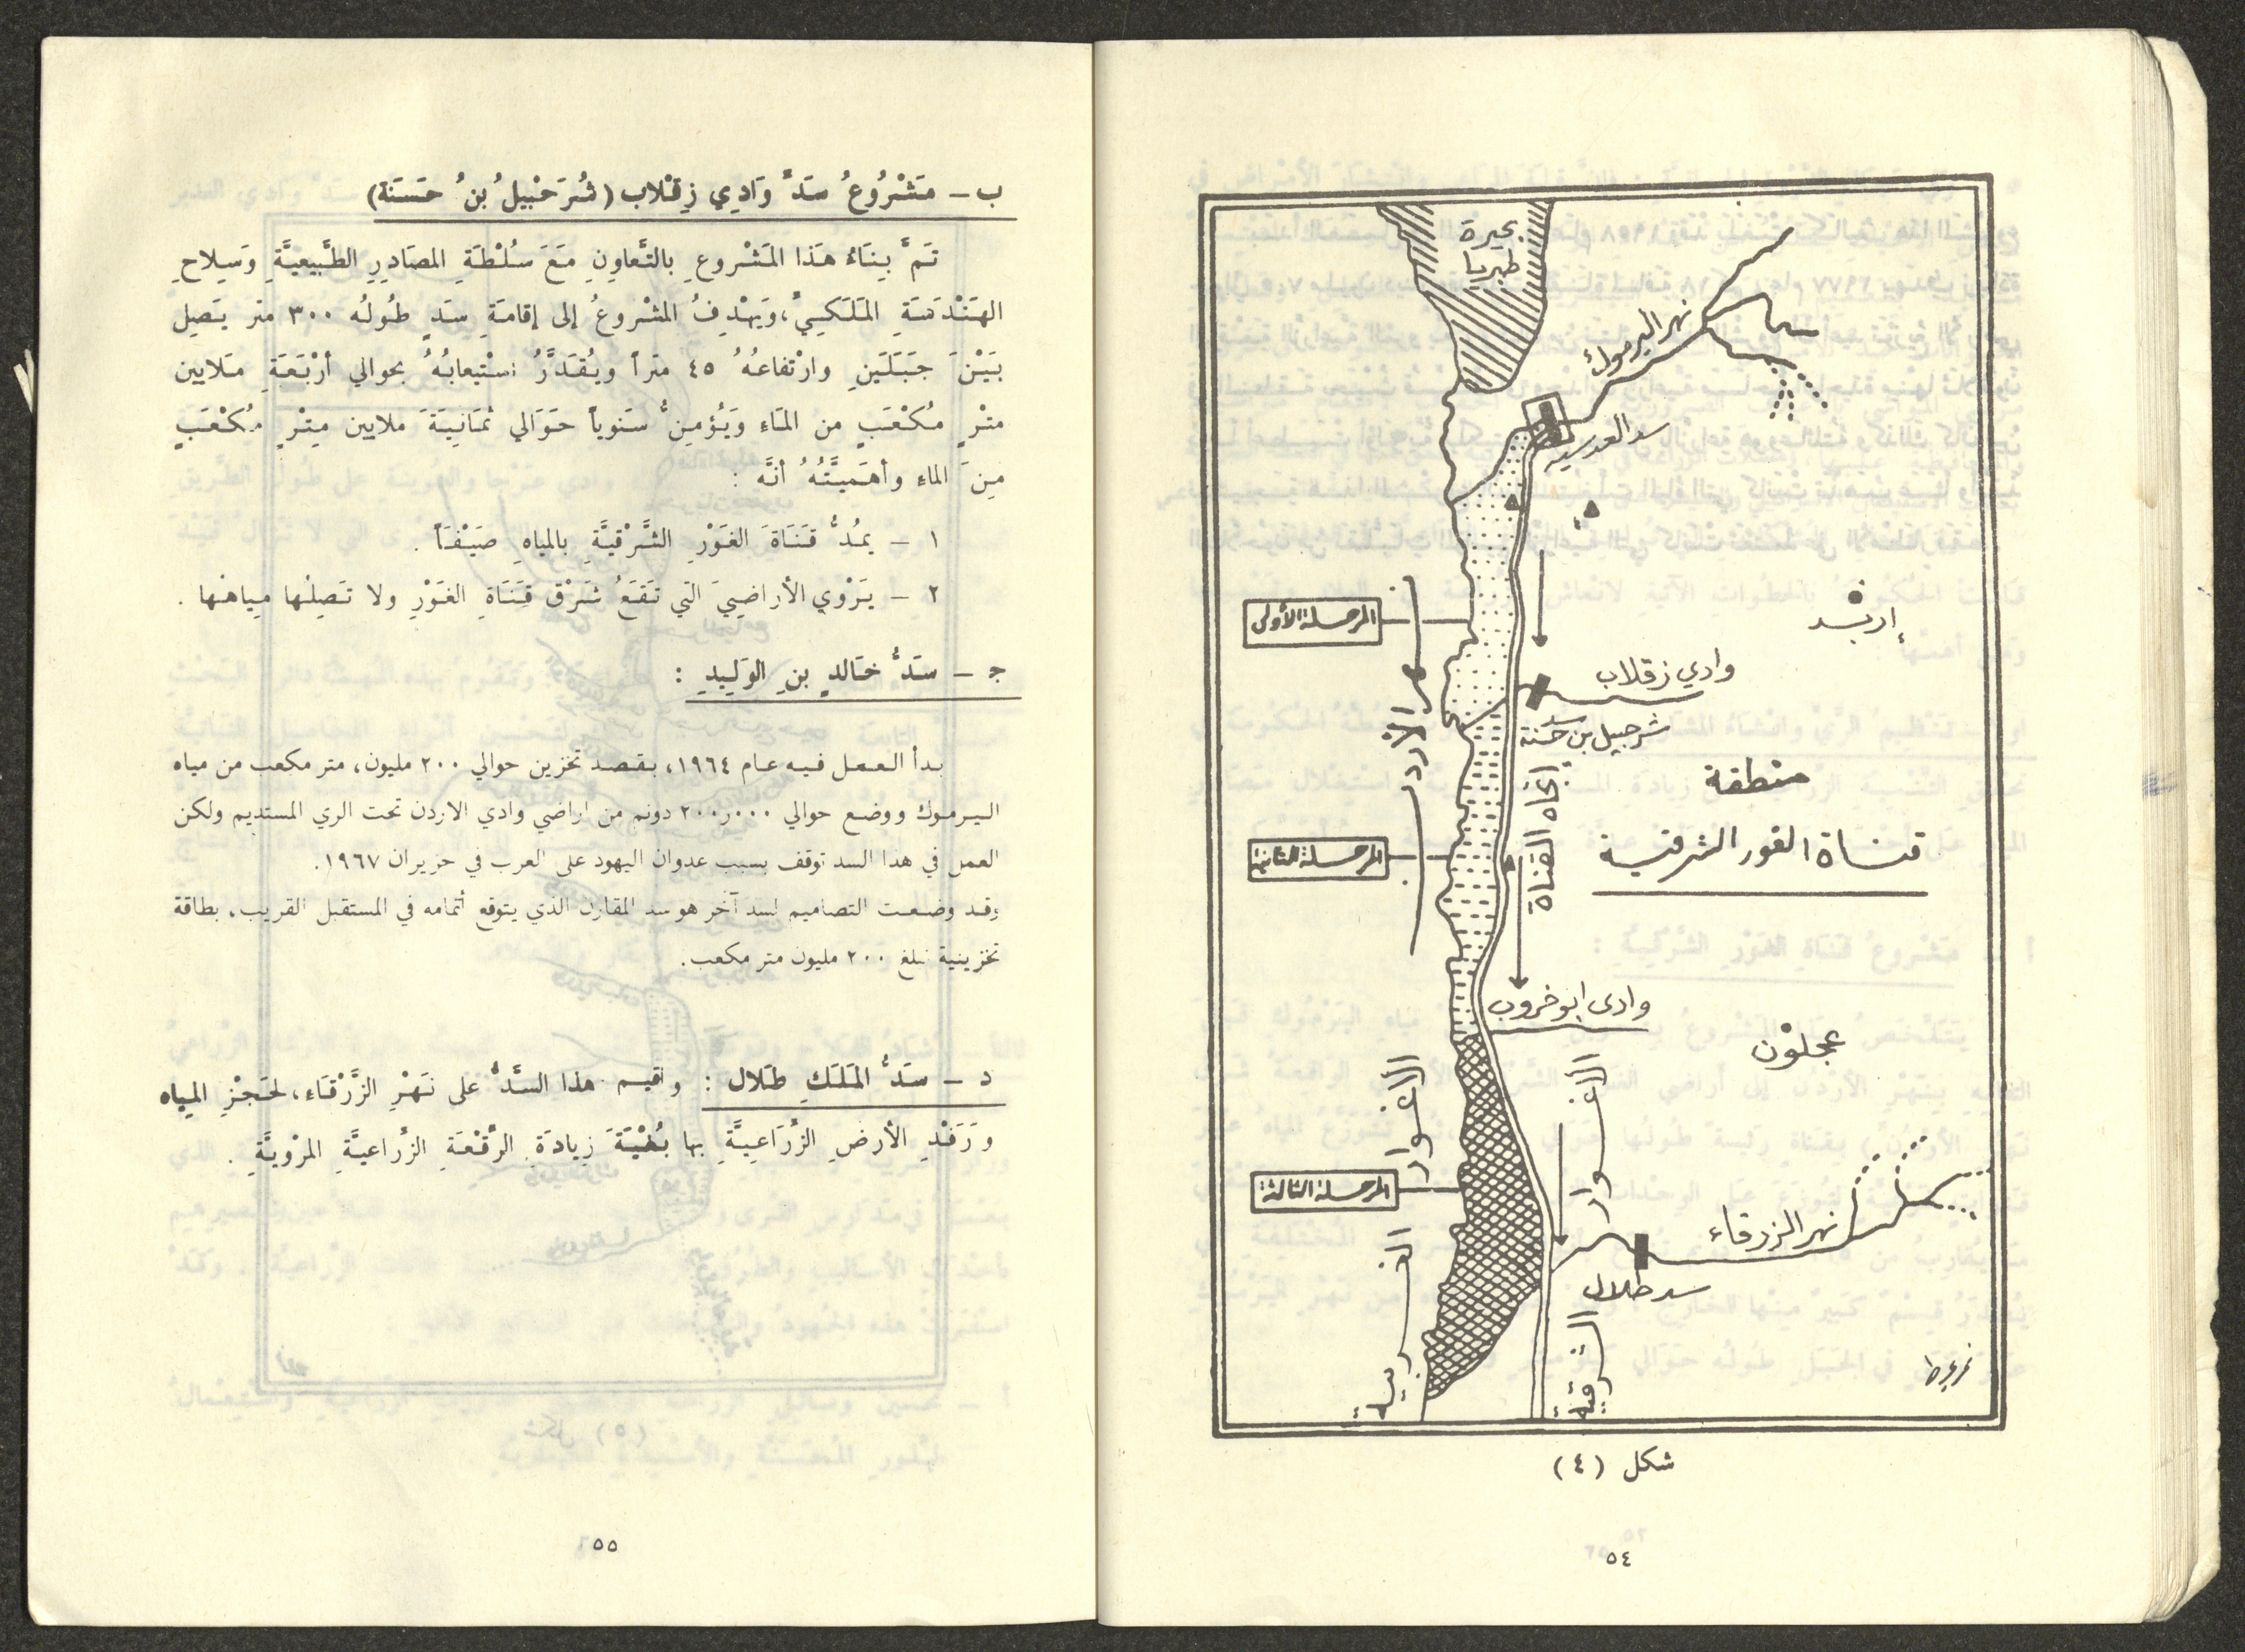 بحيرة
طبريا
نهر اليرموك
سد العدسية
إربد
المرحلة الأولى
نهر الأردن
وادي زقلاب
سد
شرحبيل بن حسنة
اتجاه القناة
منطقة
قناة الغور الشرقية
المرحلة الثانية
وادى ابو خروب
عجلون
الأغوار الغربية
الأغوار الشرقية
المرحلة الثالثة
نهر الزرقاء
سد طلال
شكل (٤)
٥٤
ب - مَشْرُوعُ سَدِّ وَادِي زِقْلاب (شُرَحْبِيلُ بنُ حَسَنَة)
تَمَّ بِنَاءُ هَذا المَشْروعِ بالتَّعاوِنِ مَعَ سُلْطَةِ المصَادِرِ الطَّبيعيَّةِ وَسِلاحِ
الهَنْدَسَةِ المَلَكِيِّ، وَيَهْدِفُ المشْروعُ إلى إقامَةِ سَدٍ طُولُه ٣٠٠ متر يَصِل
بَيْنَ جَبَلَينِ وارْتفاعُهُ ٤٥ متراً ويُقَدَّرُ اسْتيعابُهُ بحوالي أرْبَعَةِ مَلايين
متْرٍ مُكْعَبٍ من المَاءِ وَيُؤمِنُّ سَنوياً حَوَالي ثمَانِيَةَ ملايين مِتْرٍ مُكْعَبٍ
مِنَ الماءِ وأهَميَّتُهُ أنَّه :
١ - يمُدُّ قَنَاةَ الغَوْرِ الشَّرْقيَّةِ بالمياهِ صَيْفَاً .
٢ - يَرْوي الأراضِيَ التي تَقَعُ شَرْق قَنَاةِ الغَوْرِ ولا تَصِلُها مياهُها .
جـ - سَدُّ خَالدِ بنِ الوَلِيدِ :
بدأ العمل فيه عام ١٩٦٤، بقصد تخزين حوالي ٢٠٠ مليون، متر مكعب من مياه
اليرموك ووضع حوالي ٢٠٠ر٠٠٠ دونم من اراضي وادي الاردن تحت الري المستديم ولكن
العمل في هذا السد توقف بسبب عدوان اليهود على العرب في حزيران ١٩٦٧.
وقد وضعت التصاميم لسد آخر هو سد المقارن الذي يتوقع أتمامه في المستقبل القريب، بطاقة
تخزينية تبلغ ٢٠٠ مليون متر مكعب.
د - سَدُّ المَلَكِ طَلال : واقيم هذا السَّدُّ على نَهْرِ الزَّرْقَاءِ، لحَجْزِ المِياه
ورَفْدِ الأرضِ الزِّرَاعِيَّةِ بها بُغْيَةَ زِيادَةِ الرُّقْعَةِ الزِّراعيَّةِ المرْويَّةِ .
٥٥